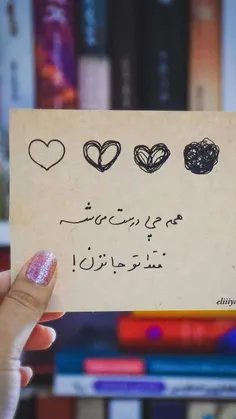 همه چی درست میشه
فقط تو جا نزن!